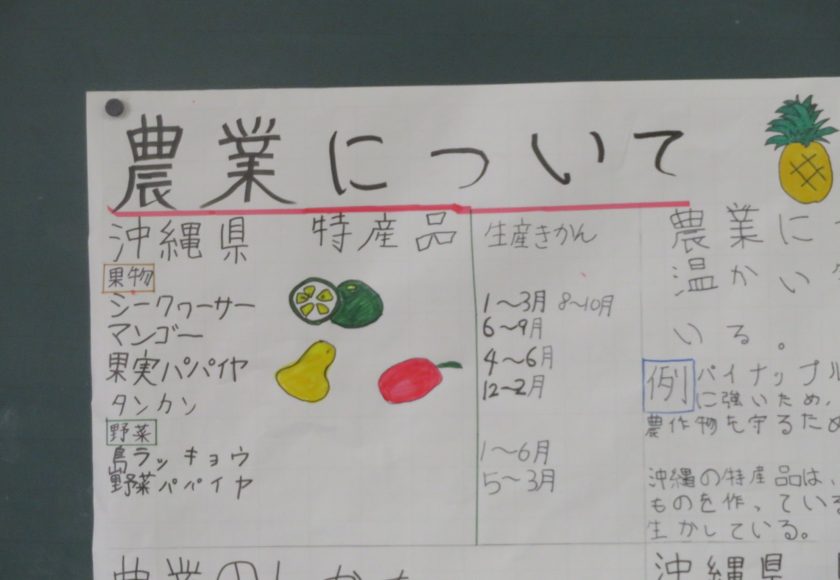 農業について
沖縄県 特産品
果物
シークヮーサー
マンゴー
果実パパイヤ
タンカン
野菜
島ラッキョウ
野菜パパイヤ
生産きかん
1～3月 8～10月
6～9月
4～6月
12～2月
1～6月
5～3月
農業に
温かい
いる。
例 パイナップル
に強いため、
農作物を守るため
沖縄の特産品は、
ものを作っている
生かしている。
沖縄県